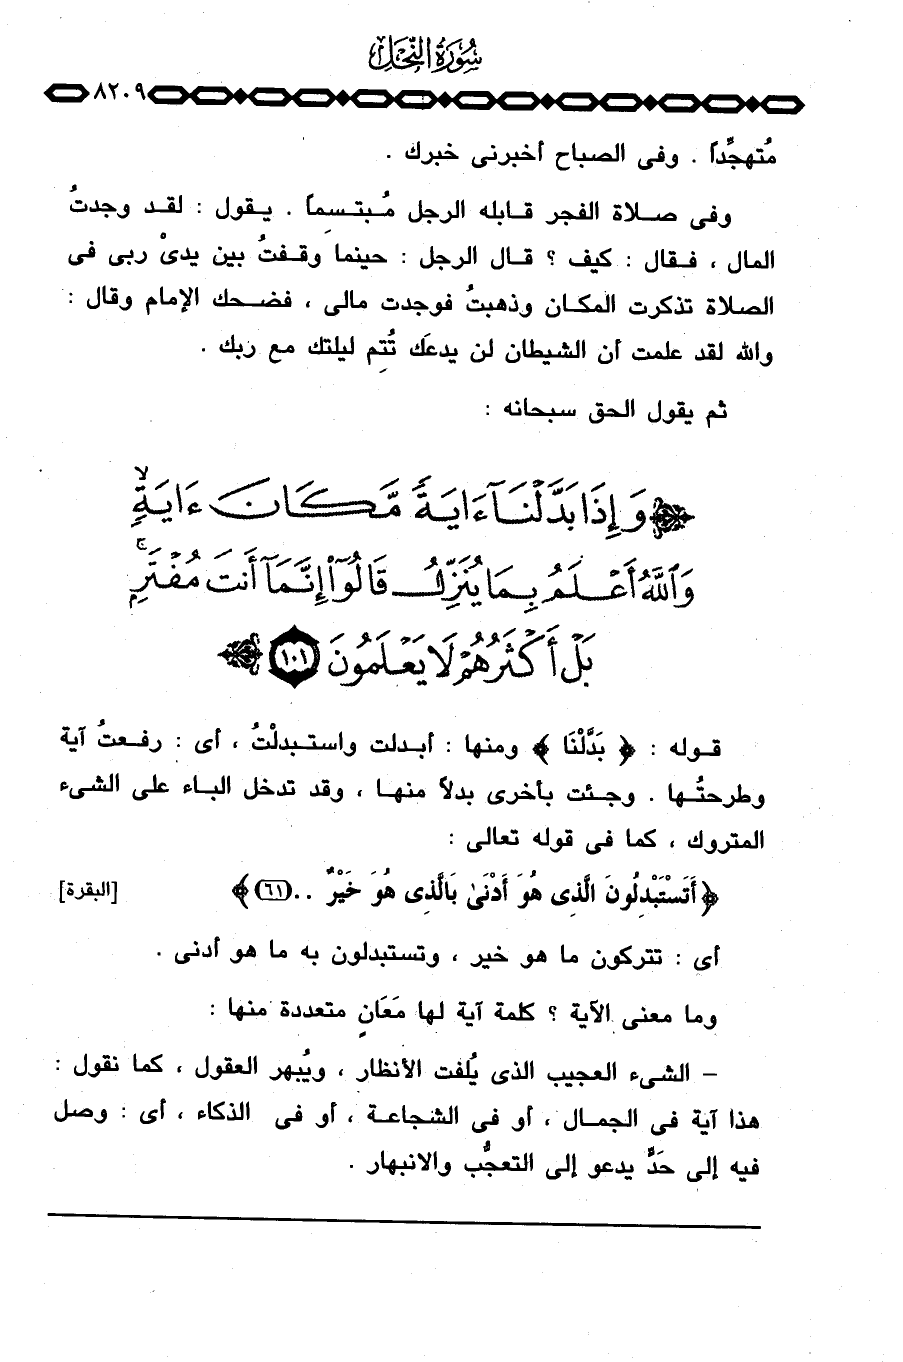 سُورَةُ النَّحْلِ
٨٢٠٩
مُتهجِّداً . وفى الصباح أخبرنى خبرك .
وفى صلاة الفجر قابله الرجل مُبتسِماً . يقول : لقد وجدتُ
المال ، فقال : كيف ؟ قال الرجل : حينما وقفتُ بين يدىْ ربى فى
الصلاة تذكرت المكان وذهبتُ فوجدت مالى ، فضحك الإمام وقال :
والله لقد علمت أن الشيطان لن يدعَك تُتِم ليلتك مع ربك .
ثم يقول الحق سبحانه :
﴿ وَإِذَا بَدَّلْنَآ ءَايَةً مَّكَانَ ءَايَةٍ ۙ
وَٱللَّهُ أَعْلَمُ بِمَا يُنَزِّلُ قَالُوٓا۟ إِنَّمَآ أَنتَ مُفْتَرٍ ۚ
بَلْ أَكْثَرُهُمْ لَا يَعْلَمُونَ ١٠١ ﴾
قوله : ﴿ بَدَّلْنَا ﴾ ومنها : أبدلت واستبدلْتُ ، أى : رفعتُ آية
وطرحتُها . وجئت بأخرى بدلاً منها ، وقد تدخل الباء على الشىء
المتروك ، كما فى قوله تعالى :
﴿ أَتَسْتَبْدِلُونَ الَّذِى هُوَ أَدْنَىٰ بِالَّذِى هُوَ خَيْرٌ .. (٦١) ﴾ [البقرة]
أى : تتركون ما هو خير ، وتستبدلون به ما هو أدنى .
وما معنى الآية ؟ كلمة آية لها مَعَانٍ متعددة منها :
– الشىء العجيب الذى يُلفت الأنظار ، ويُبهر العقول ، كما نقول :
هذا آية فى الجمال ، أو فى الشجاعة ، أو فى الذكاء ، أى : وصل
فيه إلى حَدٍّ يدعو إلى التعجُّب والانبهار .